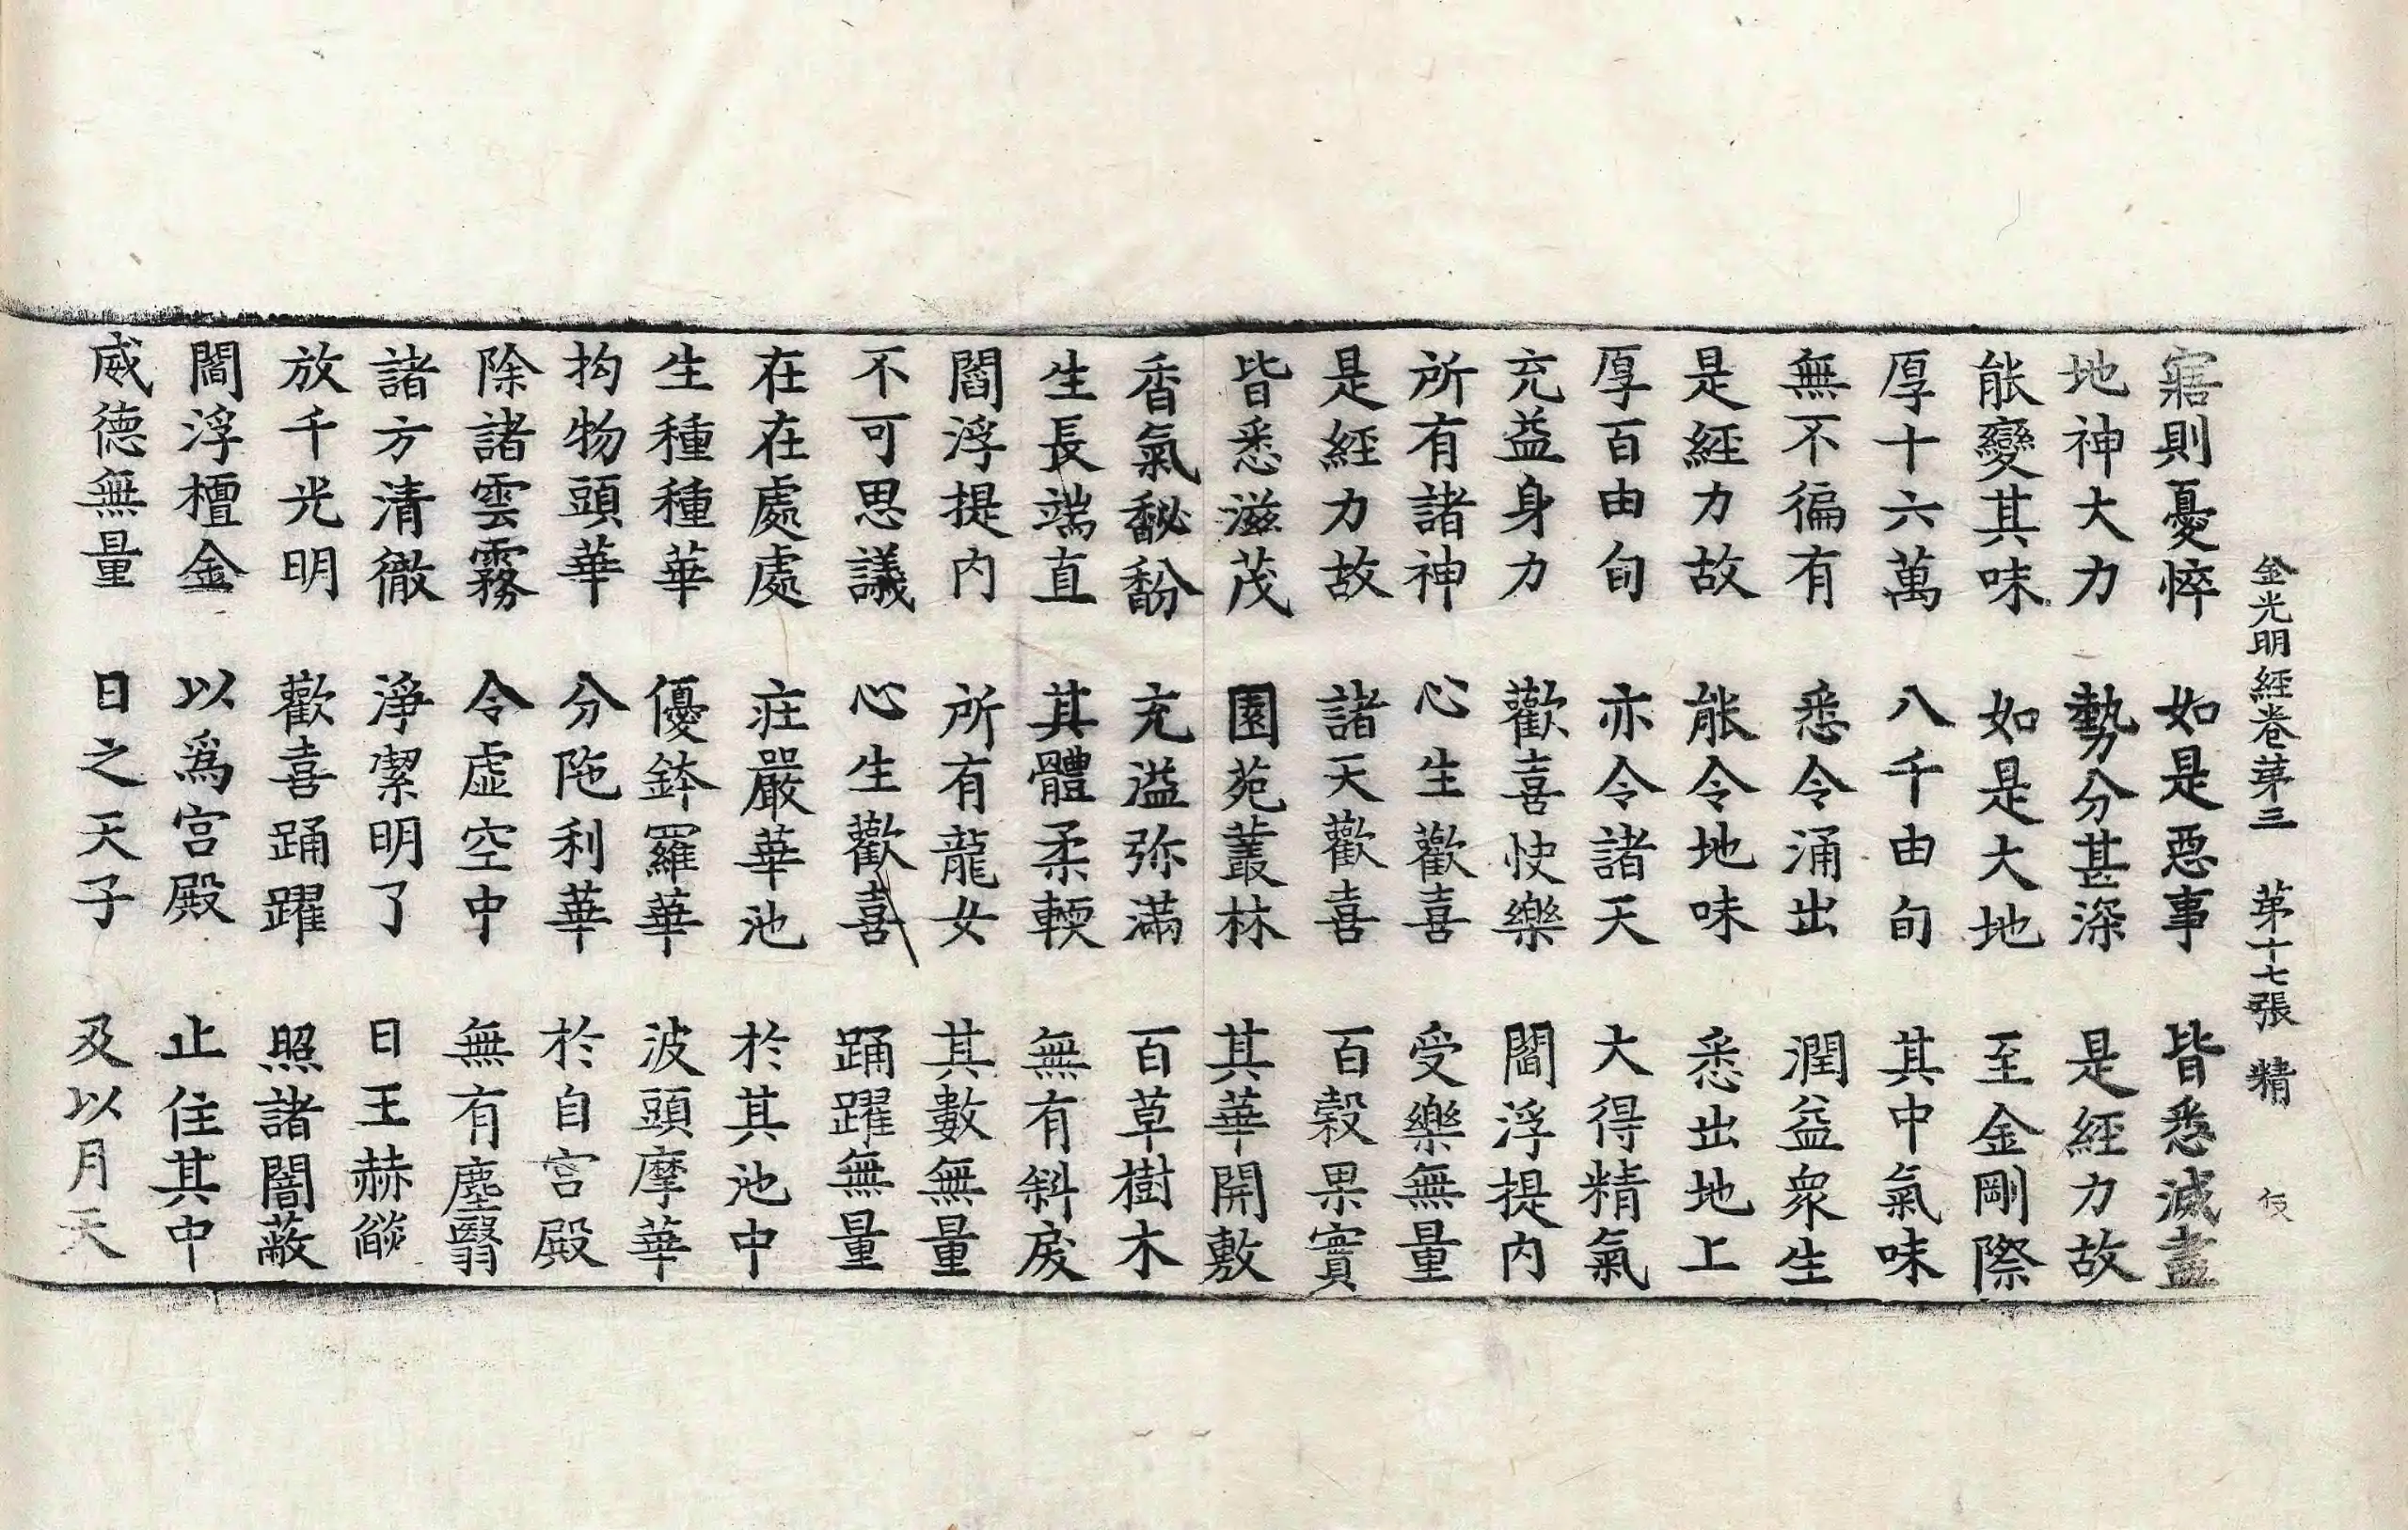 金光明經卷苐三 苐十七張 精 伎
寤則憂悴 如是惡事 皆悉滅盡
地神大力 勢分甚深 是經力故
能變其味 如是大地 至金剛際
厚十六萬 八千由旬 其中氣味
無不徧有 悉令涌出 潤益衆生
是經力故 能令地味 悉出地上
厚百由旬 亦令諸天 大得精氣
充益身力 歡喜快樂 閻浮提内
所有諸神 心生歡喜 受樂無量
是經力故 諸天歡喜 百穀果實
皆悉滋茂 園苑叢林 其華開敷
香氣馝馚 充溢弥滿 百草樹木
生長端直 其體柔輭 無有斜戾
閻浮提内 所有龍女 其數無量
不可思議 心生歡喜 踊躍無量
在在處處 莊嚴華池 於其池中
生種種華 優鉢羅華 波頭摩華
拘物頭華 分陁利華 於自宮殿
除諸雲霧 令虛空中 無有塵翳
諸方清徹 淨潔明了 日王赫𦦨
放千光明 歡喜踊躍 照諸闇蔽
閻浮檀金 以爲宮殿 止住其中
威德無量 日之天子 及以月天